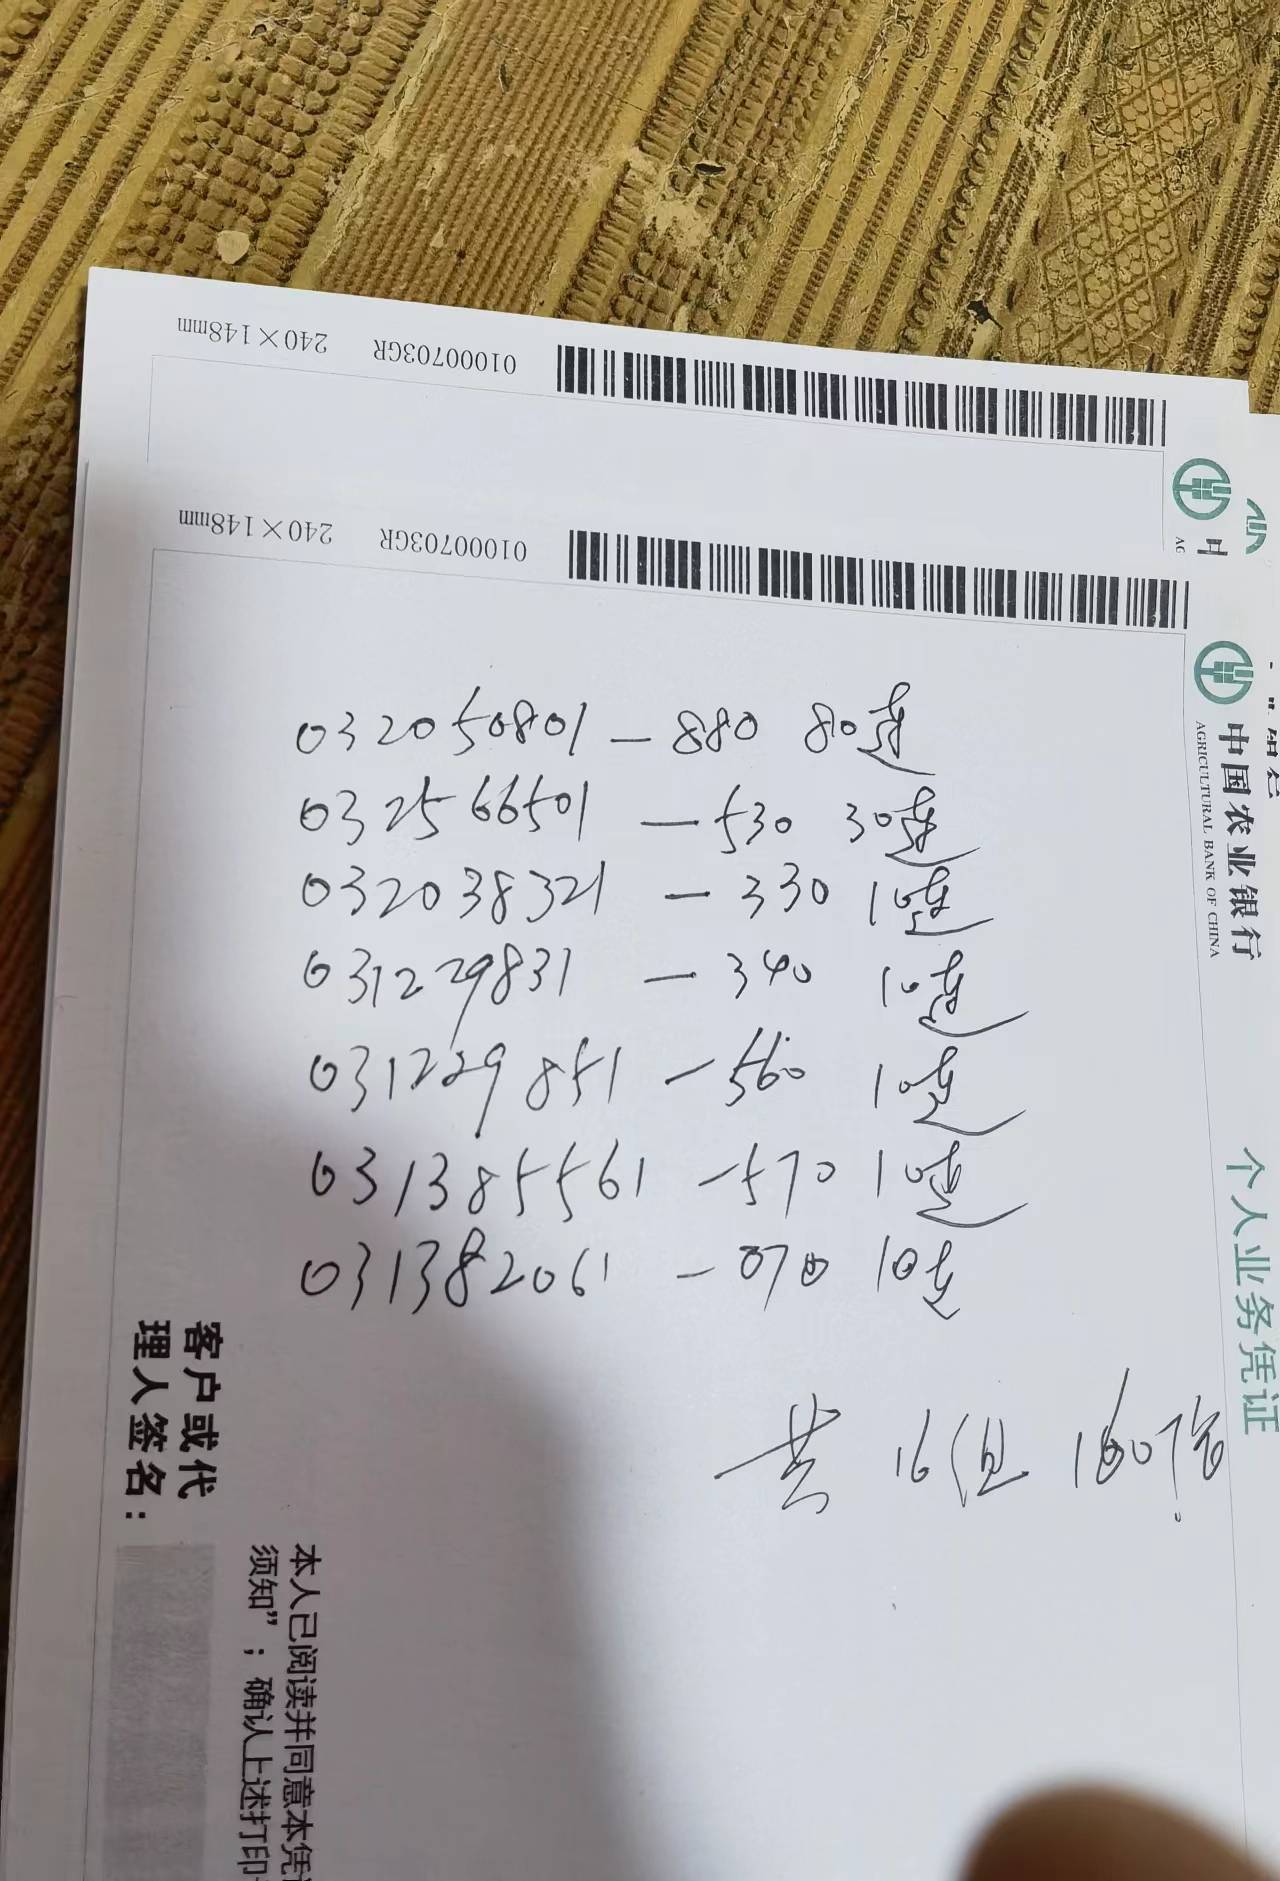 240×148mm 01000703GR
240×148mm 01000703GR
中国农业银行
AGRICULTURAL BANK OF CHINA
个人业务凭证
032050801 - 880 80连
032566501 - 530 30连
032038321 - 330 10连
031229831 - 340 10连
031229851 - 560 10连
031385561 - 570 10连
031382061 - 070 10连
共 16组 160张
客户或代
理人签名:
本人已阅读并同意本凭
须知”;确认上述打印